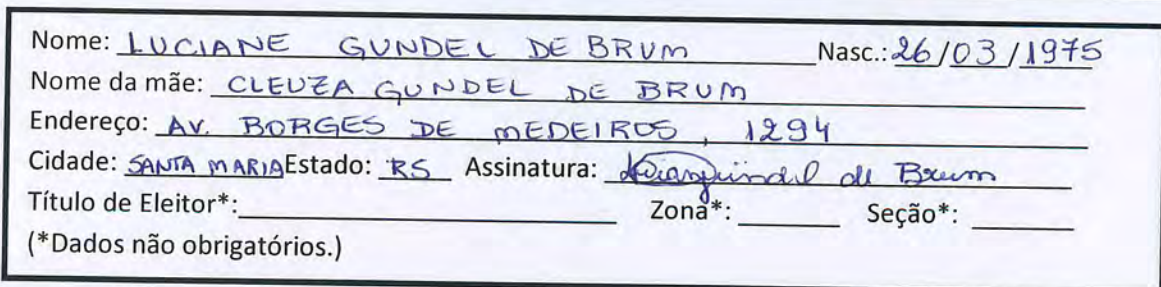 Nome: LUCIANE GUNDEL DE BRUM Nasc.: 26/03/1975
Nome da mãe: CLEUZA GUNDEL DE BRUM
Endereço: AV. BORGES DE MEDEIROS, 1294
Cidade: SANTA MARIA Estado: RS Assinatura: de Brum
Título de Eleitor*: Zona*: Seção*:
(*Dados não obrigatórios.)